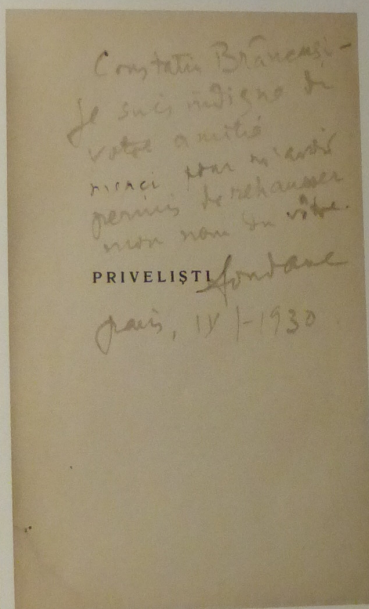 Constatin Brâncuși –
Je suis indigne de
votre amitié
merci pour m'avoir
permis de rehausser
mon nom du vôtre.
PRIVELIȘTI
fondane
paris, IV 1930